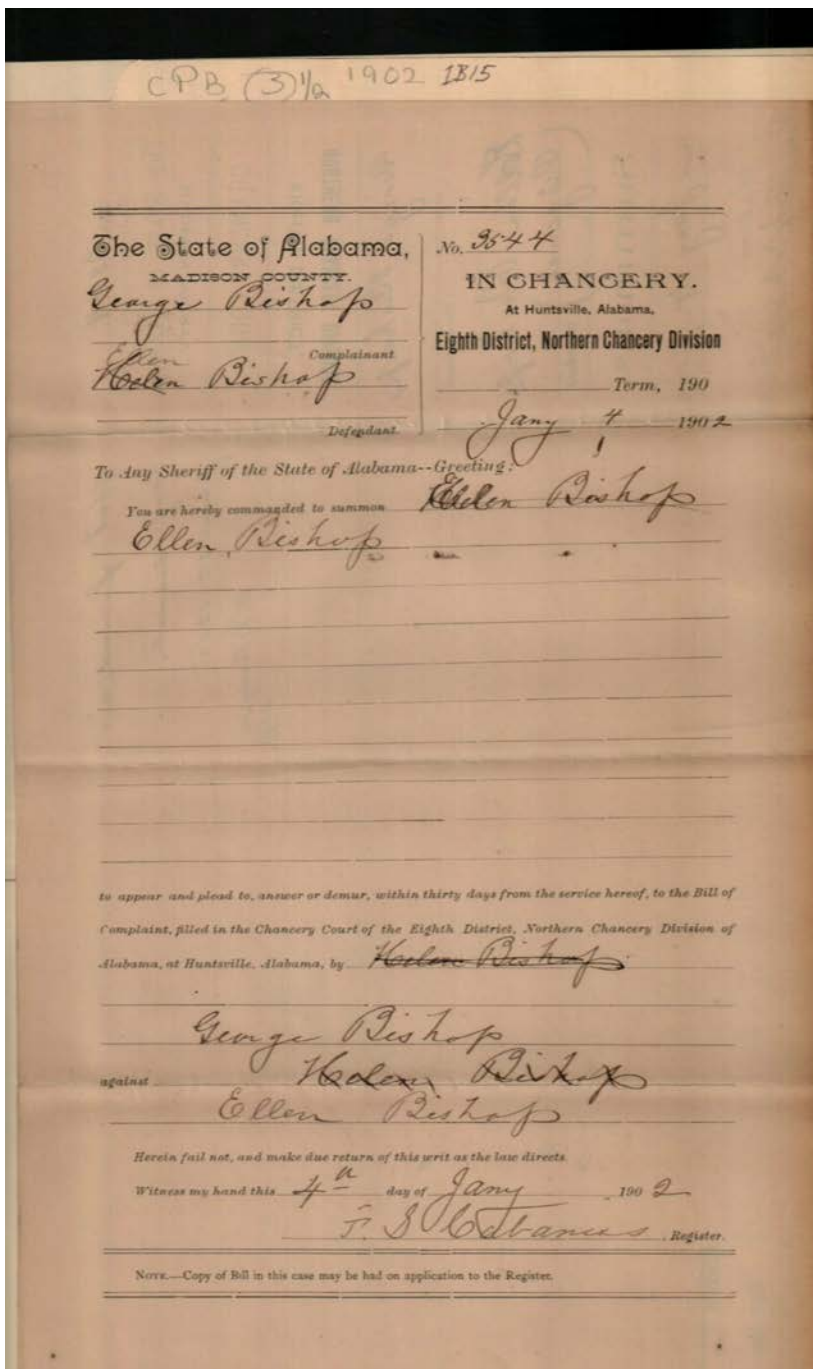 CPB (3)½ 1902 1815
The State of Alabama,
MADISON COUNTY.
George Bishop
Complainant
Ellen
Helen Bishop
Defendant
No. 3544
IN CHANCERY.
At Huntsville, Alabama,
Eighth District, Northern Chancery Division
Term, 190
Jany 4 1902
To Any Sheriff of the State of Alabama--Greeting:
You are hereby commanded to summon Helen Bishop
Ellen Bishop
to appear and plead to, answer or demur, within thirty days from the service hereof, to the Bill of
Complaint, filled in the Chancery Court of the Eighth District, Northern Chancery Division of
Alabama, at Huntsville, Alabama, by Helen Bishop
George Bishop
against Helen Bishop
Ellen Bishop
Herein fail not, and make due return of this writ as the law directs.
Witness my hand this 4th day of Jany , 1902
F. S Cabaniss , Register.
NOTE.—Copy of Bill in this case may be had on application to the Register.